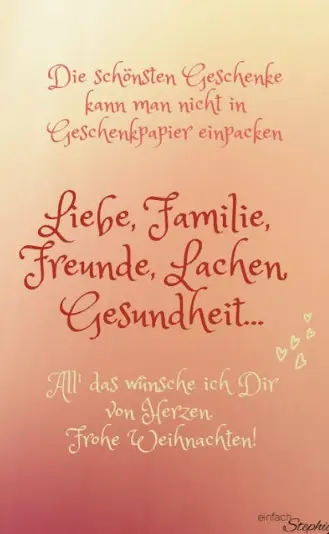 Die schönsten Geschenke
kann man nicht in
Geschenkpapier einpacken
Liebe, Familie,
Freunde, Lachen,
Gesundheit...
All' das wünsche ich Dir
von Herzen.
Frohe Weihnachten!
einfach
Stephie